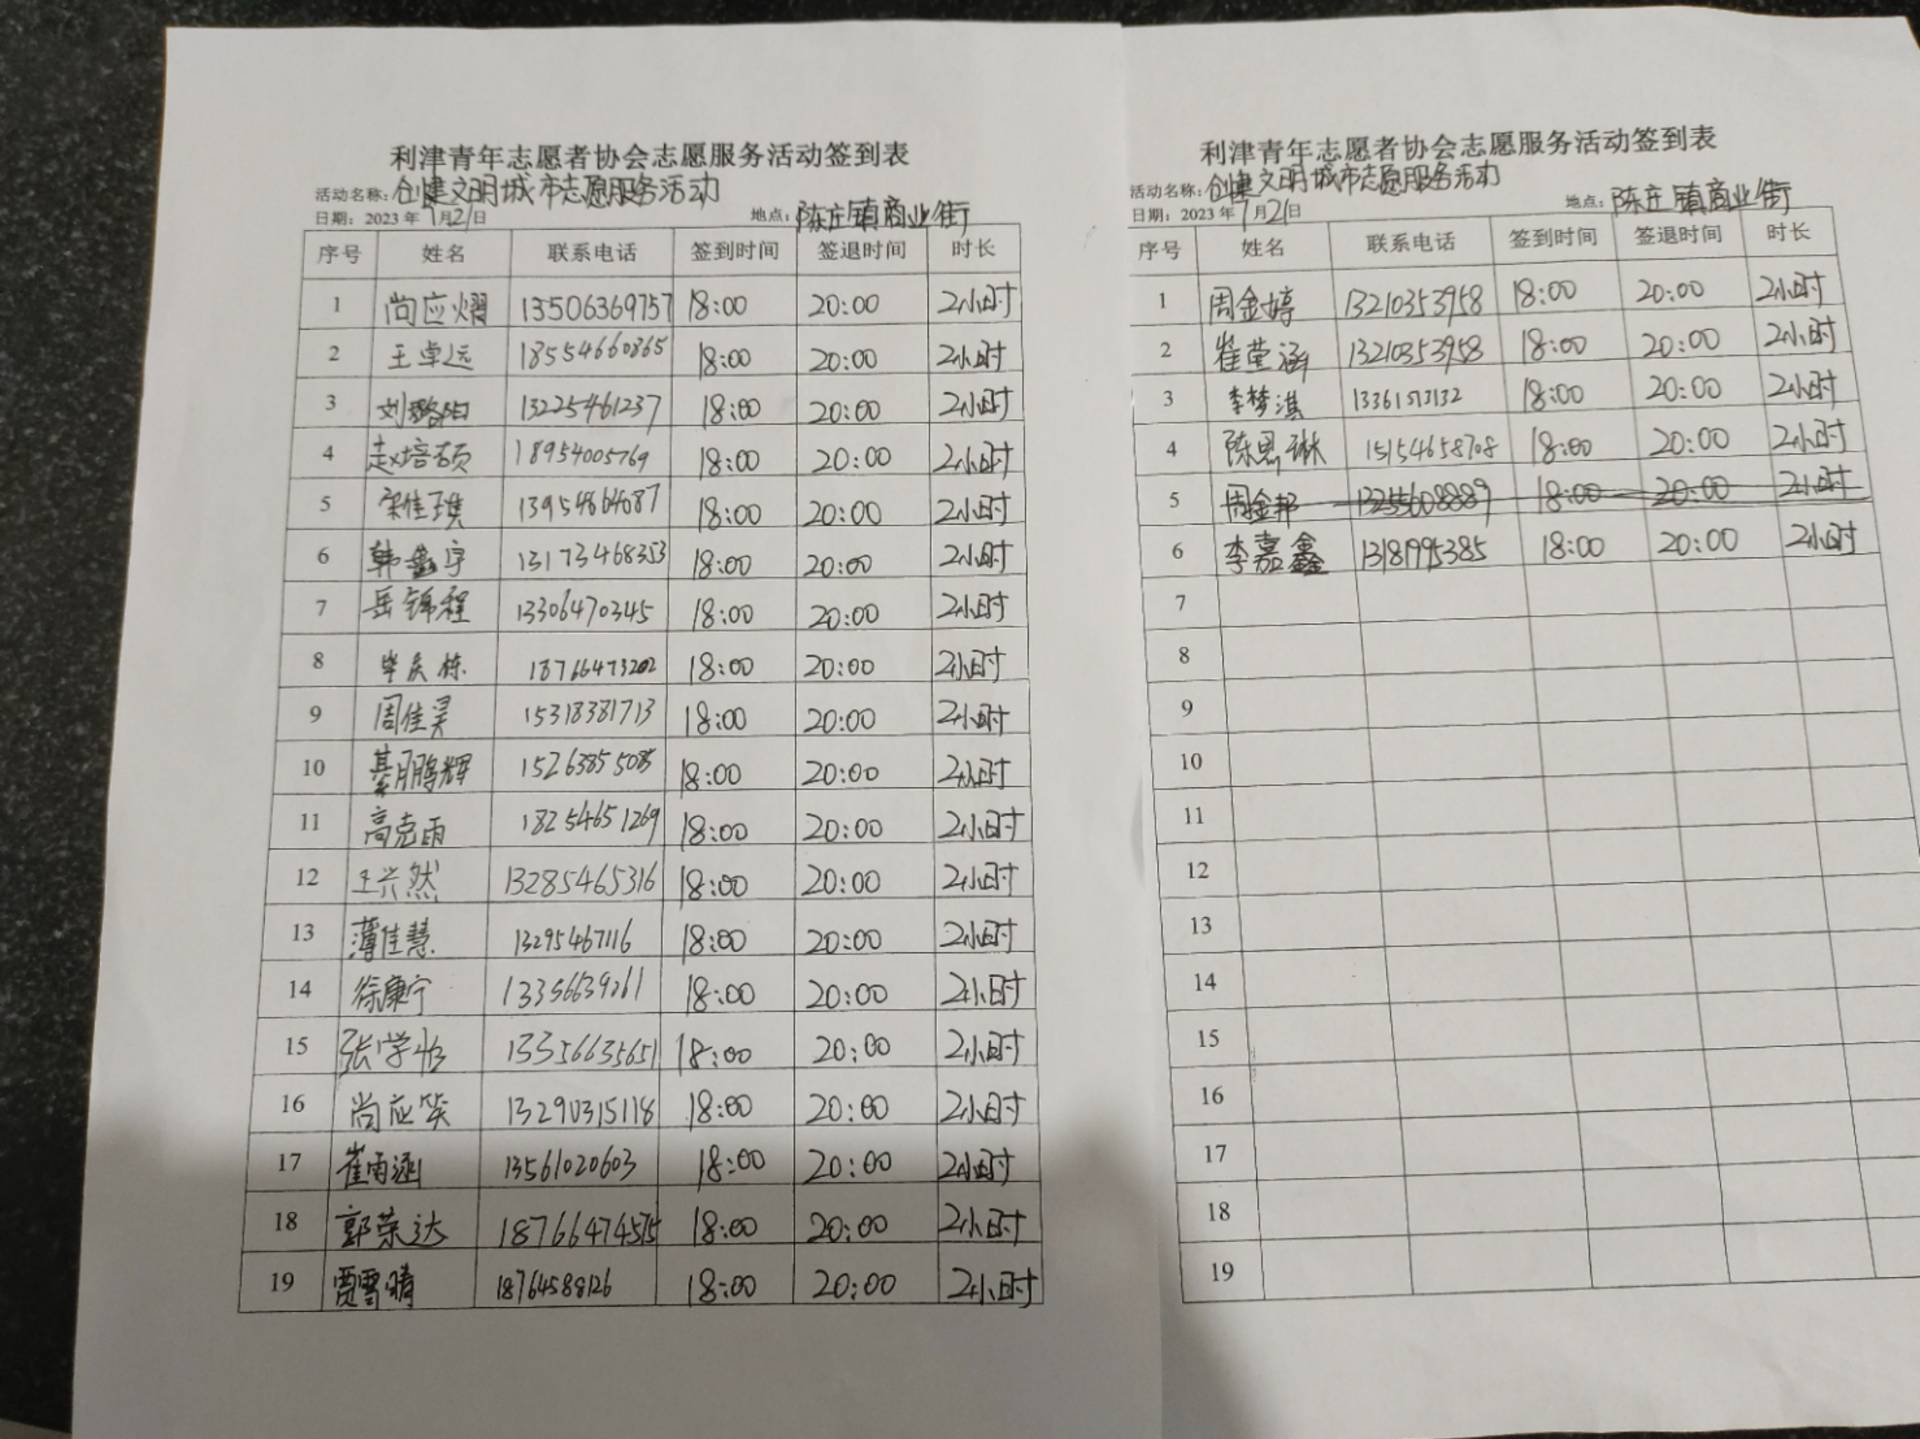 利津青年志愿者协会志愿服务活动签到表
活动名称：创建文明城市志愿服务活动
日期：2023年7月21日 地点：陈庄镇商业街
序号 姓名 联系电话 签到时间 签退时间 时长
1 尚应熠 13506369757 18:00 20:00 2小时
2 王卓远 18554660865 18:00 20:00 2小时
3 刘璐阳 13225461237 18:00 20:00 2小时
4 赵培硕 18954005769 18:00 20:00 2小时
5 宋佳琪 13954864687 18:00 20:00 2小时
6 韩鑫宇 13173468353 18:00 20:00 2小时
7 岳锦程 13306470345 18:00 20:00 2小时
8 毕庆栋 18766473202 18:00 20:00 2小时
9 周佳昊 15318381713 18:00 20:00 2小时
10 綦鹏辉 15263855085 18:00 20:00 2小时
11 高克雨 18254651269 18:00 20:00 2小时
12 王兴然 13285465316 18:00 20:00 2小时
13 薄佳慧 13295467116 18:00 20:00 2小时
14 徐康宁 13356639261 18:00 20:00 2小时
15 张学怡 13356635651 18:00 20:00 2小时
16 尚应笑 13290315118 18:00 20:00 2小时
17 崔雨涵 13561020603 18:00 20:00 2小时
18 郭荣达 18766474575 18:00 20:00 2小时
19 贾雪晴 18764588126 18:00 20:00 2小时
利津青年志愿者协会志愿服务活动签到表
活动名称：创建文明城市志愿服务活动
日期：2023年7月21日 地点：陈庄镇商业街
序号 姓名 联系电话 签到时间 签退时间 时长
1 周金婷 13210353958 18:00 20:00 2小时
2 崔莹涵 13210353958 18:00 20:00 2小时
3 李梦淇 13361513132 18:00 20:00 2小时
4 陈思琳 15154658708 18:00 20:00 2小时
5 周金邦 13255608889 18:00 20:00 2小时
6 李嘉鑫 13181995385 18:00 20:00 2小时
7
8
9
10
11
12
13
14
15
16
17
18
19